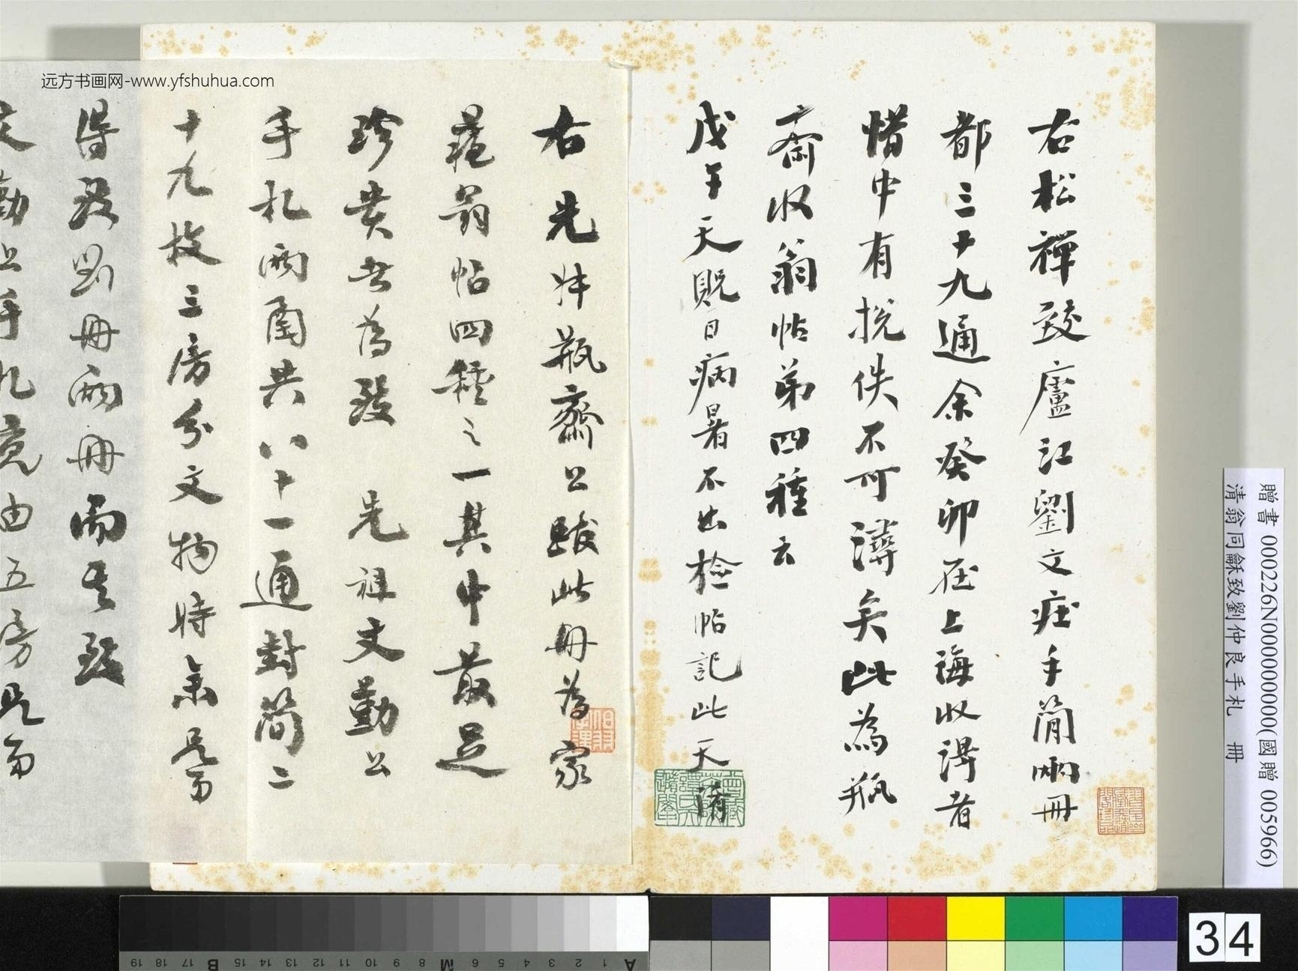 远方书画网-www.yfshuhua.com
右松禪致廬江劉文莊手簡兩冊
都三十九通余癸卯在上海收得者
惜中有挩佚不可溥矣此為瓶
齋收翁帖弟四種云
戊午天貺日病暑不出檢帖記此 天
右先 瓶齋公跋此冊為家
藏翁帖四種之一其中最足
珍貴者為致 先祖文勤公
手札兩開共八十一通封簡二
十九枚三房分文物時余
得及劉冊兩冊而其致
文勤公手札竟由五房
贈書 000226N000000000(國贈 005966)
清翁同龢致劉仲良手札 冊
34
19 18 17 B 16 15 14 13 12 11 10 9 8 M 7 6 5 4 3 2 1 A